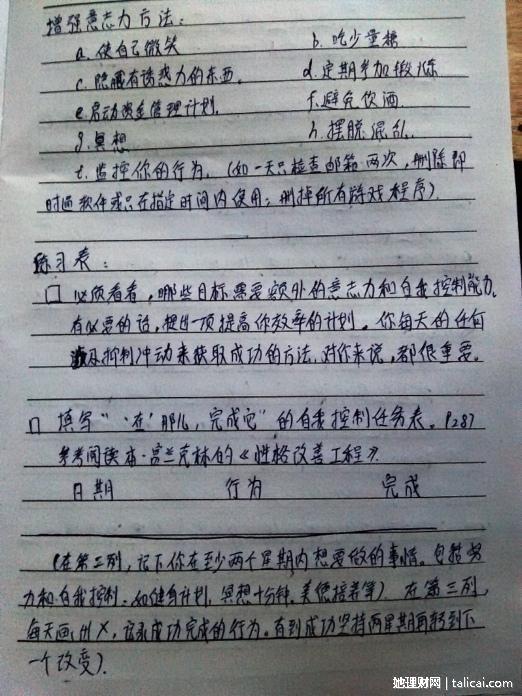 增强意志力方法:
a. 使自己微笑 b. 吃少量糖
c. 隐藏有诱惑力的东西. d. 定期参加锻炼
e. 启动资金管理计划. f. 避免饮酒
g. 冥想 h. 摆脱混乱.
t. 监控你的行为. (如一天只检查邮箱两次,删除即
时通软件或只在指定时间内使用;删掉所有游戏程序)
练习表:
□ 必须看看,哪些目标需要额外的意志力和自我控制能力.
有必要的话,提出一项提高你效率的计划. 你每天的任何
抑制冲动来获取成功的方法.对你来说,都很重要.
□ 填写“·在'那儿,完成它”的自我控制任务表. P287
参考阅读本·富兰克林的《性格改善工程》.
日期 行为 完成
(在第二列,记下你在至少两个星期内想要做的事情.包括努
力和自我控制.如健身计划,冥想十分钟,美德培养等) 在第三列,
每天画,研X,记录成功完成的行为.直到成功坚持两星期再转到下
一个改变).
她理财网 | talicai.com